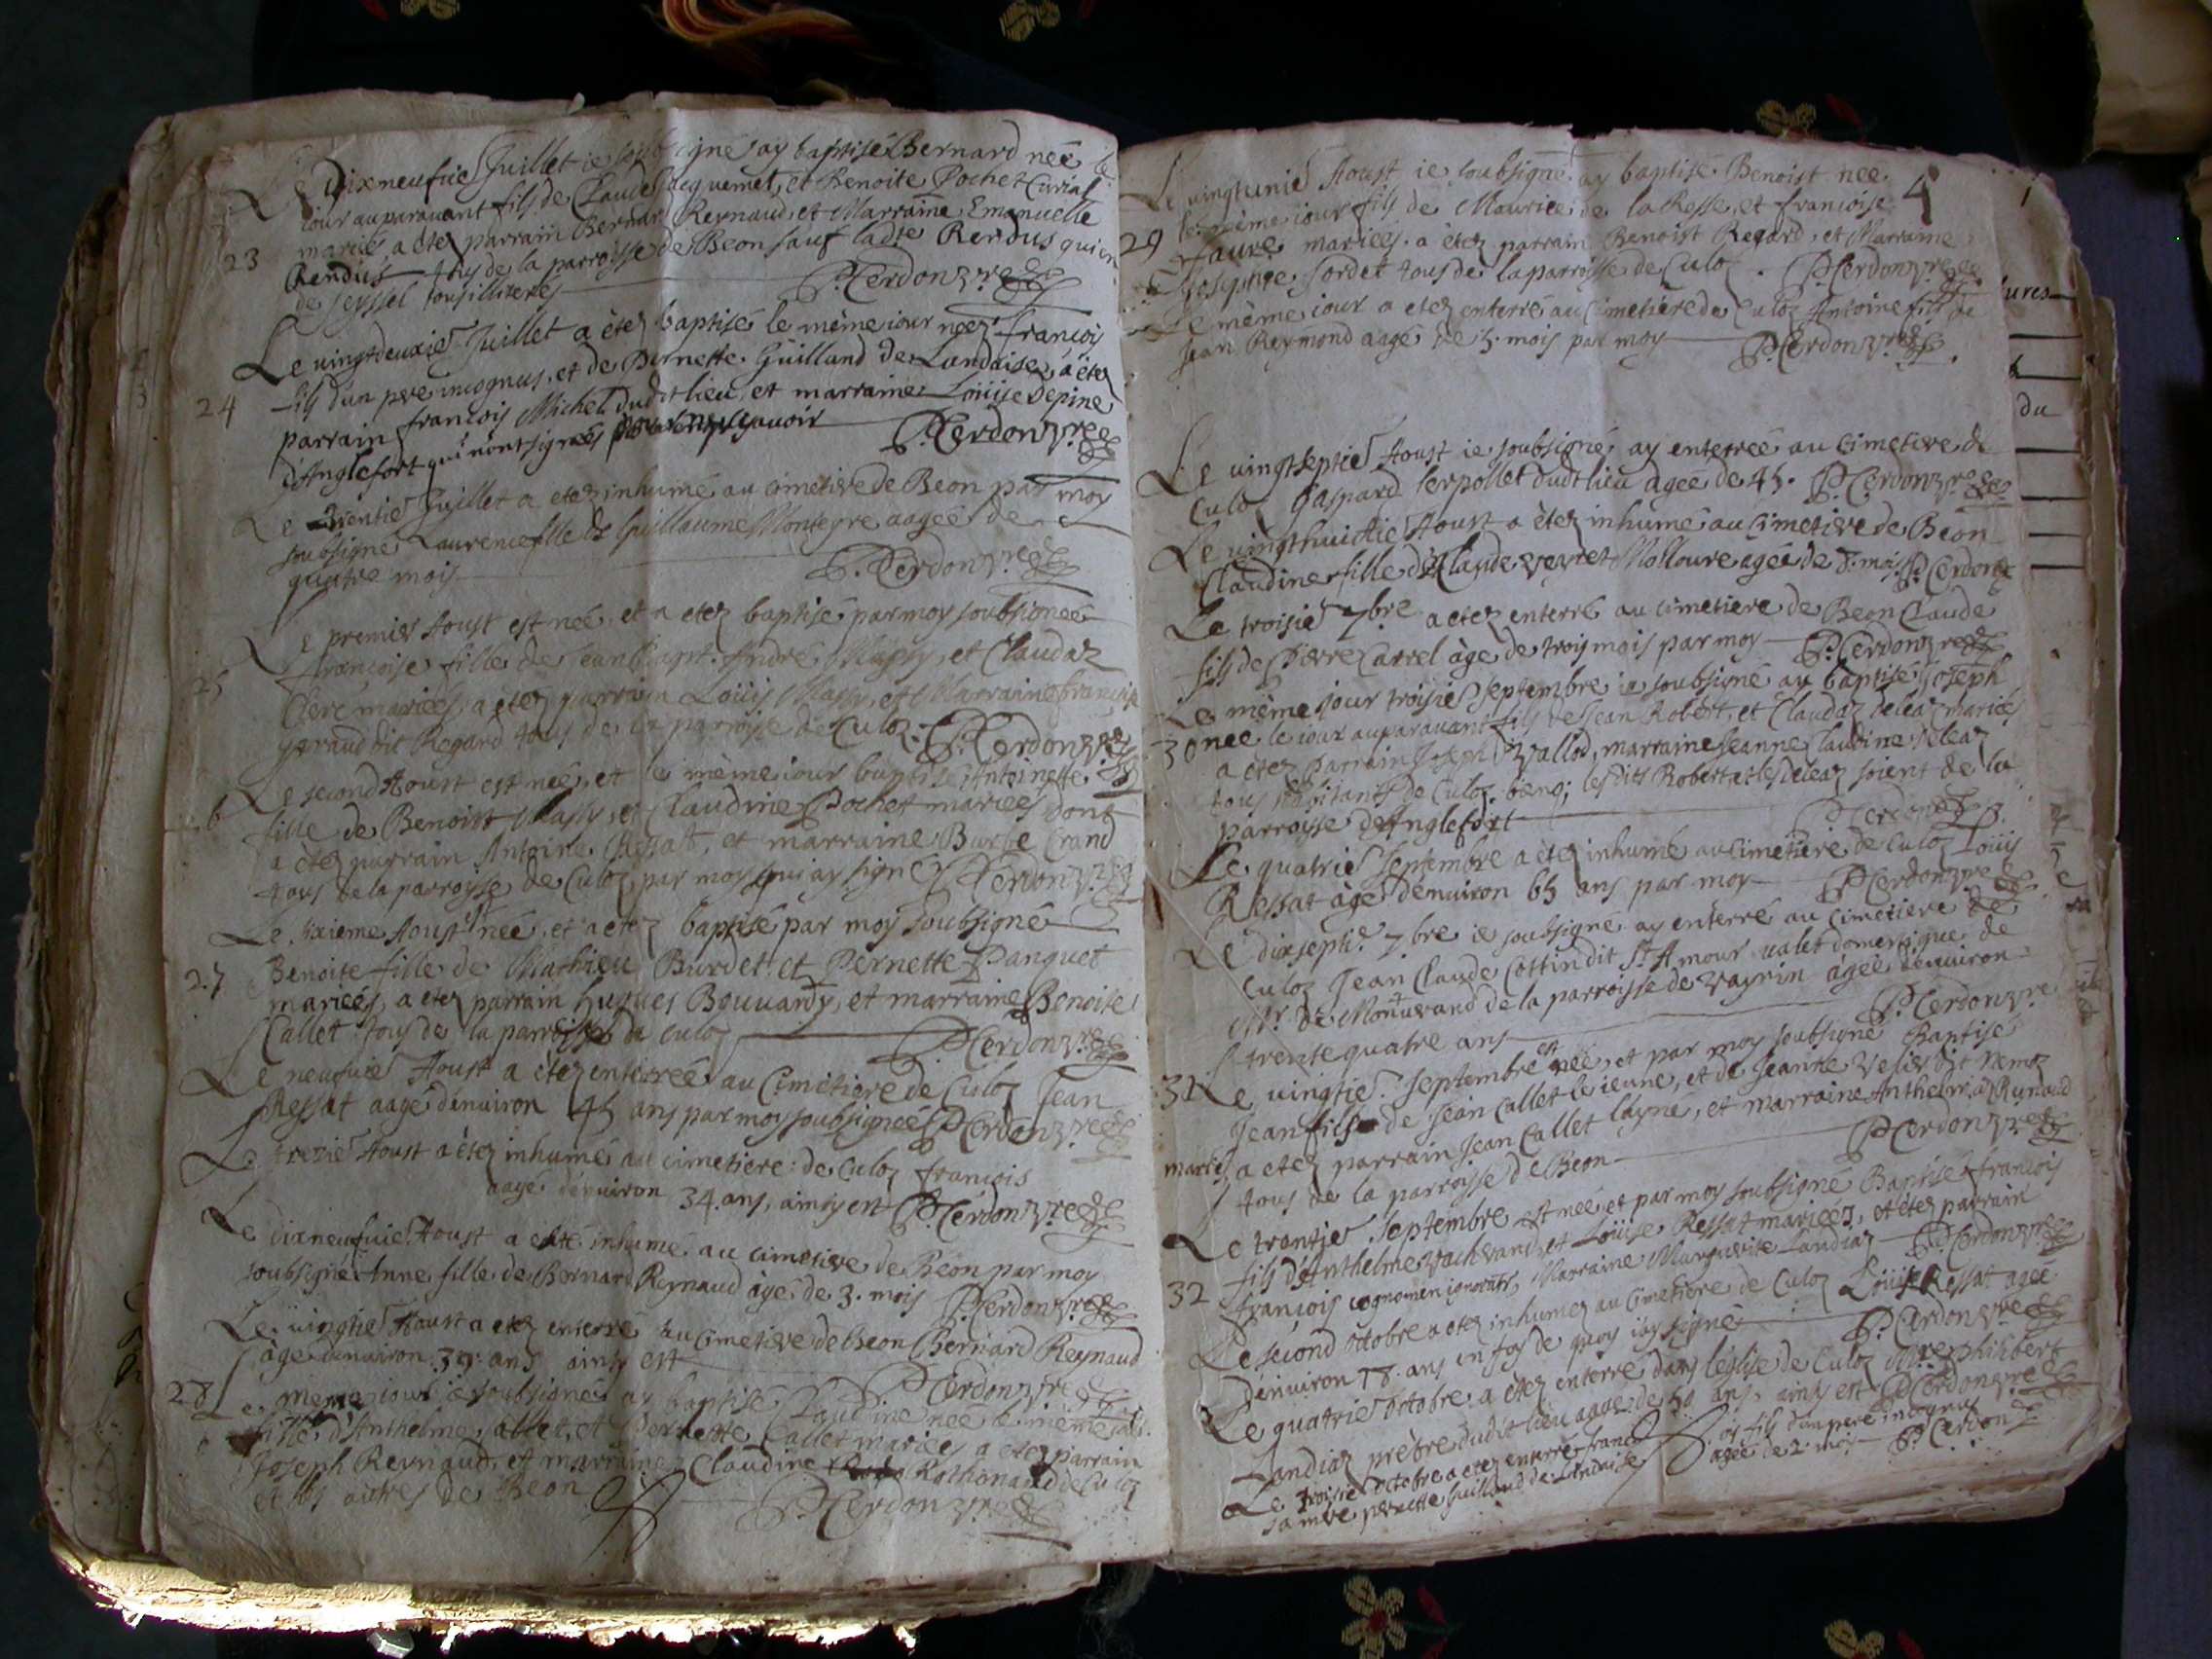 Le dixneufuie Juillet ie soubsigné ay baptisé Bernard neé le
iour auparauant fils de Claude Jacquemet, et Benoite Pochet Curial
23 mariés, a etez parrain Bernard Reynaud, et Marraine Emanuelle
Rendus tous de la parroisse de Beon sauf ladte Rendus qui est
de seyssel tous illiteres P. Cerdon pre
Le vingtdeuxie Juillet a etez baptisé le mème iour neez françois
24 fils d'un pere incognus, et de Pernette Guilland de Landaise, a étez
parrain françois Michel dudt lieu, et marraine Loüise Depine
d'Anglefort qui n'ont signés pour ne sçauoir P. Cerdon pre
Le Trentie Juillet a etez inhumé au cimetiere de Beon par moy
soubsigné Laurence fille de Guillaume Monteyre aageé de
quatre mois P. Cerdon pre
Le premier Aoust est neé, et a etez baptisé par moy soubsigneé
françoise fille de Jean Bapt. André Massy, et Claudaz
25 Clerc marieés, a etez parrain Loüis Massy, et Marraine françoise
yuraud dit Regard tous de la parroisse de Culoz. P. Cerdon pre
Le second Aoust est neé, et le mème iour baptisé Antoinette
fille de Benoist Massy, et Claudine Pochet marieés dont
a etez parrain Antoine Ressat, et marraine Burbe Crand
tous de la parroisse de Culoz par moy qui ay signé P. Cerdon pre
Le sixieme Aoust est neé, et a etez baptisé par moy soubsigné
27 Benoite fille de Mathieu Burdet et Pernette Panquet
marieés, a etez parrain hugues Bouuardy, et marraine Benoite
Callet tous de la parroisse de Culoz P. Cerdon pre
Le neufuie Aoust a étez enterreé au Cimetiere de Culoz Jean
Ressat aagé d'enuiron 45 ans par moy soubsigneé P. Cerdon pre
Le trezie Aoust a étez inhumé au cimetiere de Culoz françois
aagé d'enuiron 34 ans, ainsy est P. Cerdon pre
Le dixneufuie Aoust a etté inhumé au cimetiere de Beon par moy
soubsigné Anne fille de Bernard Reynaud àgé de 3. mois P. Cerdon pre
Le vingtie Aoust a etez enterré au Cimetiere de Beon Bernard Reynaud
àgé denuiron 39 ans ainsy est P. Cerdon pre
28 Le meme iour ie soubsigné ay baptisé Claudine neé le mème iour
fille d'Anthelme Callet, et Pernette Callet mariés a etez parrain
Joseph Reynaud, et marraine Claudine Rothonand de Culoz
et les autres de Beon P. Cerdon pre
4
Le vingtunie Aoust ie soubsigné ay baptisé Benoist neé
le mème iour fils de Maurice de la Resse, et françoise
29 faure mariees a étez parrain Benoist Regard, et Marraine
Josephte Sordet tous de la parroisse de Culoz. P. Cerdon pre
Le mème iour a etez enterré au Cimetiere de Culoz Antoine fils de
Jean Reymond aagé de 5. mois par moy P. Cerdon pre
Le vingtseptie Aoust ie soubsigné ay enterreé au Cimetiere de
Culoz Gaspard Serpollet dudt lieu ageé de 45. P. Cerdon pre
Le vingthuictie Aoust a étez inhumé au Cimetiere de Beon
Claudine fille de Claude Veyret Molloure ageé de 8. mois P. Cerdon
Le troisie 7bre a etez enterré au cimetiere de Beon Claude
fils de Pierre Carrel àge de trois mois par moy P. Cerdon pre
Le mème iour troisie septembre ie soubsigné ay baptisé Joseph
30 neé le iour auparauant fils de Jean Robert, et Claudaz Deleaz mariés
a etez parrain Joseph Vallod, marraine Jeanne Claudine Deleaz
tous habitants de Culoz bienq; lesdits Robert et les Deleaz soient de la
parroisse d'Anglefort P. Cerdon
Le quatrie septembre a étez inhumé au cimetiere de Culoz Loüis
Ressat àgé denuiron 65 ans par moy P. Cerdon pre
Le dixseptie 7bre ie soubsigné ay enterré au cimetiere de
Culoz Jean Claude Cottin dit St Amour ualet domestique de
Mr. de Montuerand de la parroisse de vayrin ageé denuiron
trente quatre ans P. Cerdon pre
31 Le vingtie septembre est neé, et par moy soubsigné Baptisé
Jean fils de Jean Callet le ieune, et de Jeanne Velier dit Nemoz
mariés, a etez parrain Jean Callet l'ayné, et marraine Anthelmaz Runaud
tous de la parroisse de Beon P. Cerdon pre
Le trentie Septembre est neé et par moy soubsigné Baptisé françois
fils d'Anthelme Vacherand, et Loüise Ressat marieés, et étez parrain
32 françois cognomen ignoratr, Marraine Marguerite Landiaz P. Cerdon pre
Le second octobre a etez inhumez au Cimetiere de Culoz Loüise Ressat ageé
denuiron 18. ans en foy de quoy i'ay signé P. Cerdon pre
Le quatrie octobre a etez enterré dans l'eglise de Culoz Mre philibert
Landiaz prebre dudit lieu aagé de 50 ans, ainsy est P. Cerdon pre
Le Troisie octobre a etez enterré françois fils d'un pere incognu
sa mere pernette Guilland de Landaise ageé de 2 mois P. Cerdon
ures
du